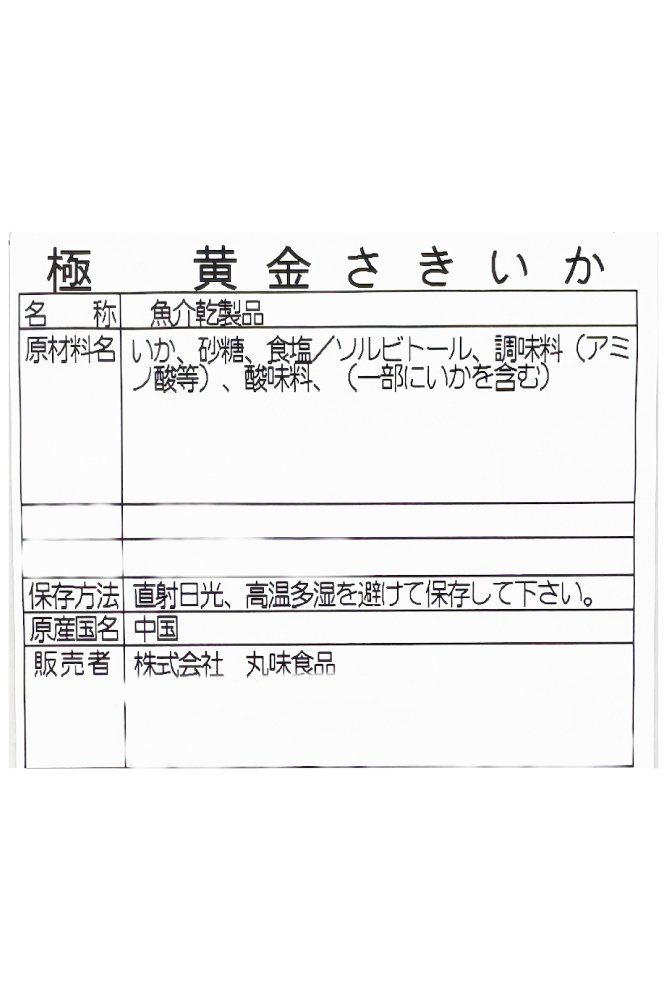 極　黄金さきいか
名　称　魚介乾製品
原材料名　いか、砂糖、食塩／ソルビトール、調味料（アミ
ノ酸等）、酸味料、（一部にいかを含む）
保存方法　直射日光、高温多湿を避けて保存して下さい。
原産国名　中国
販売者　株式会社　丸味食品